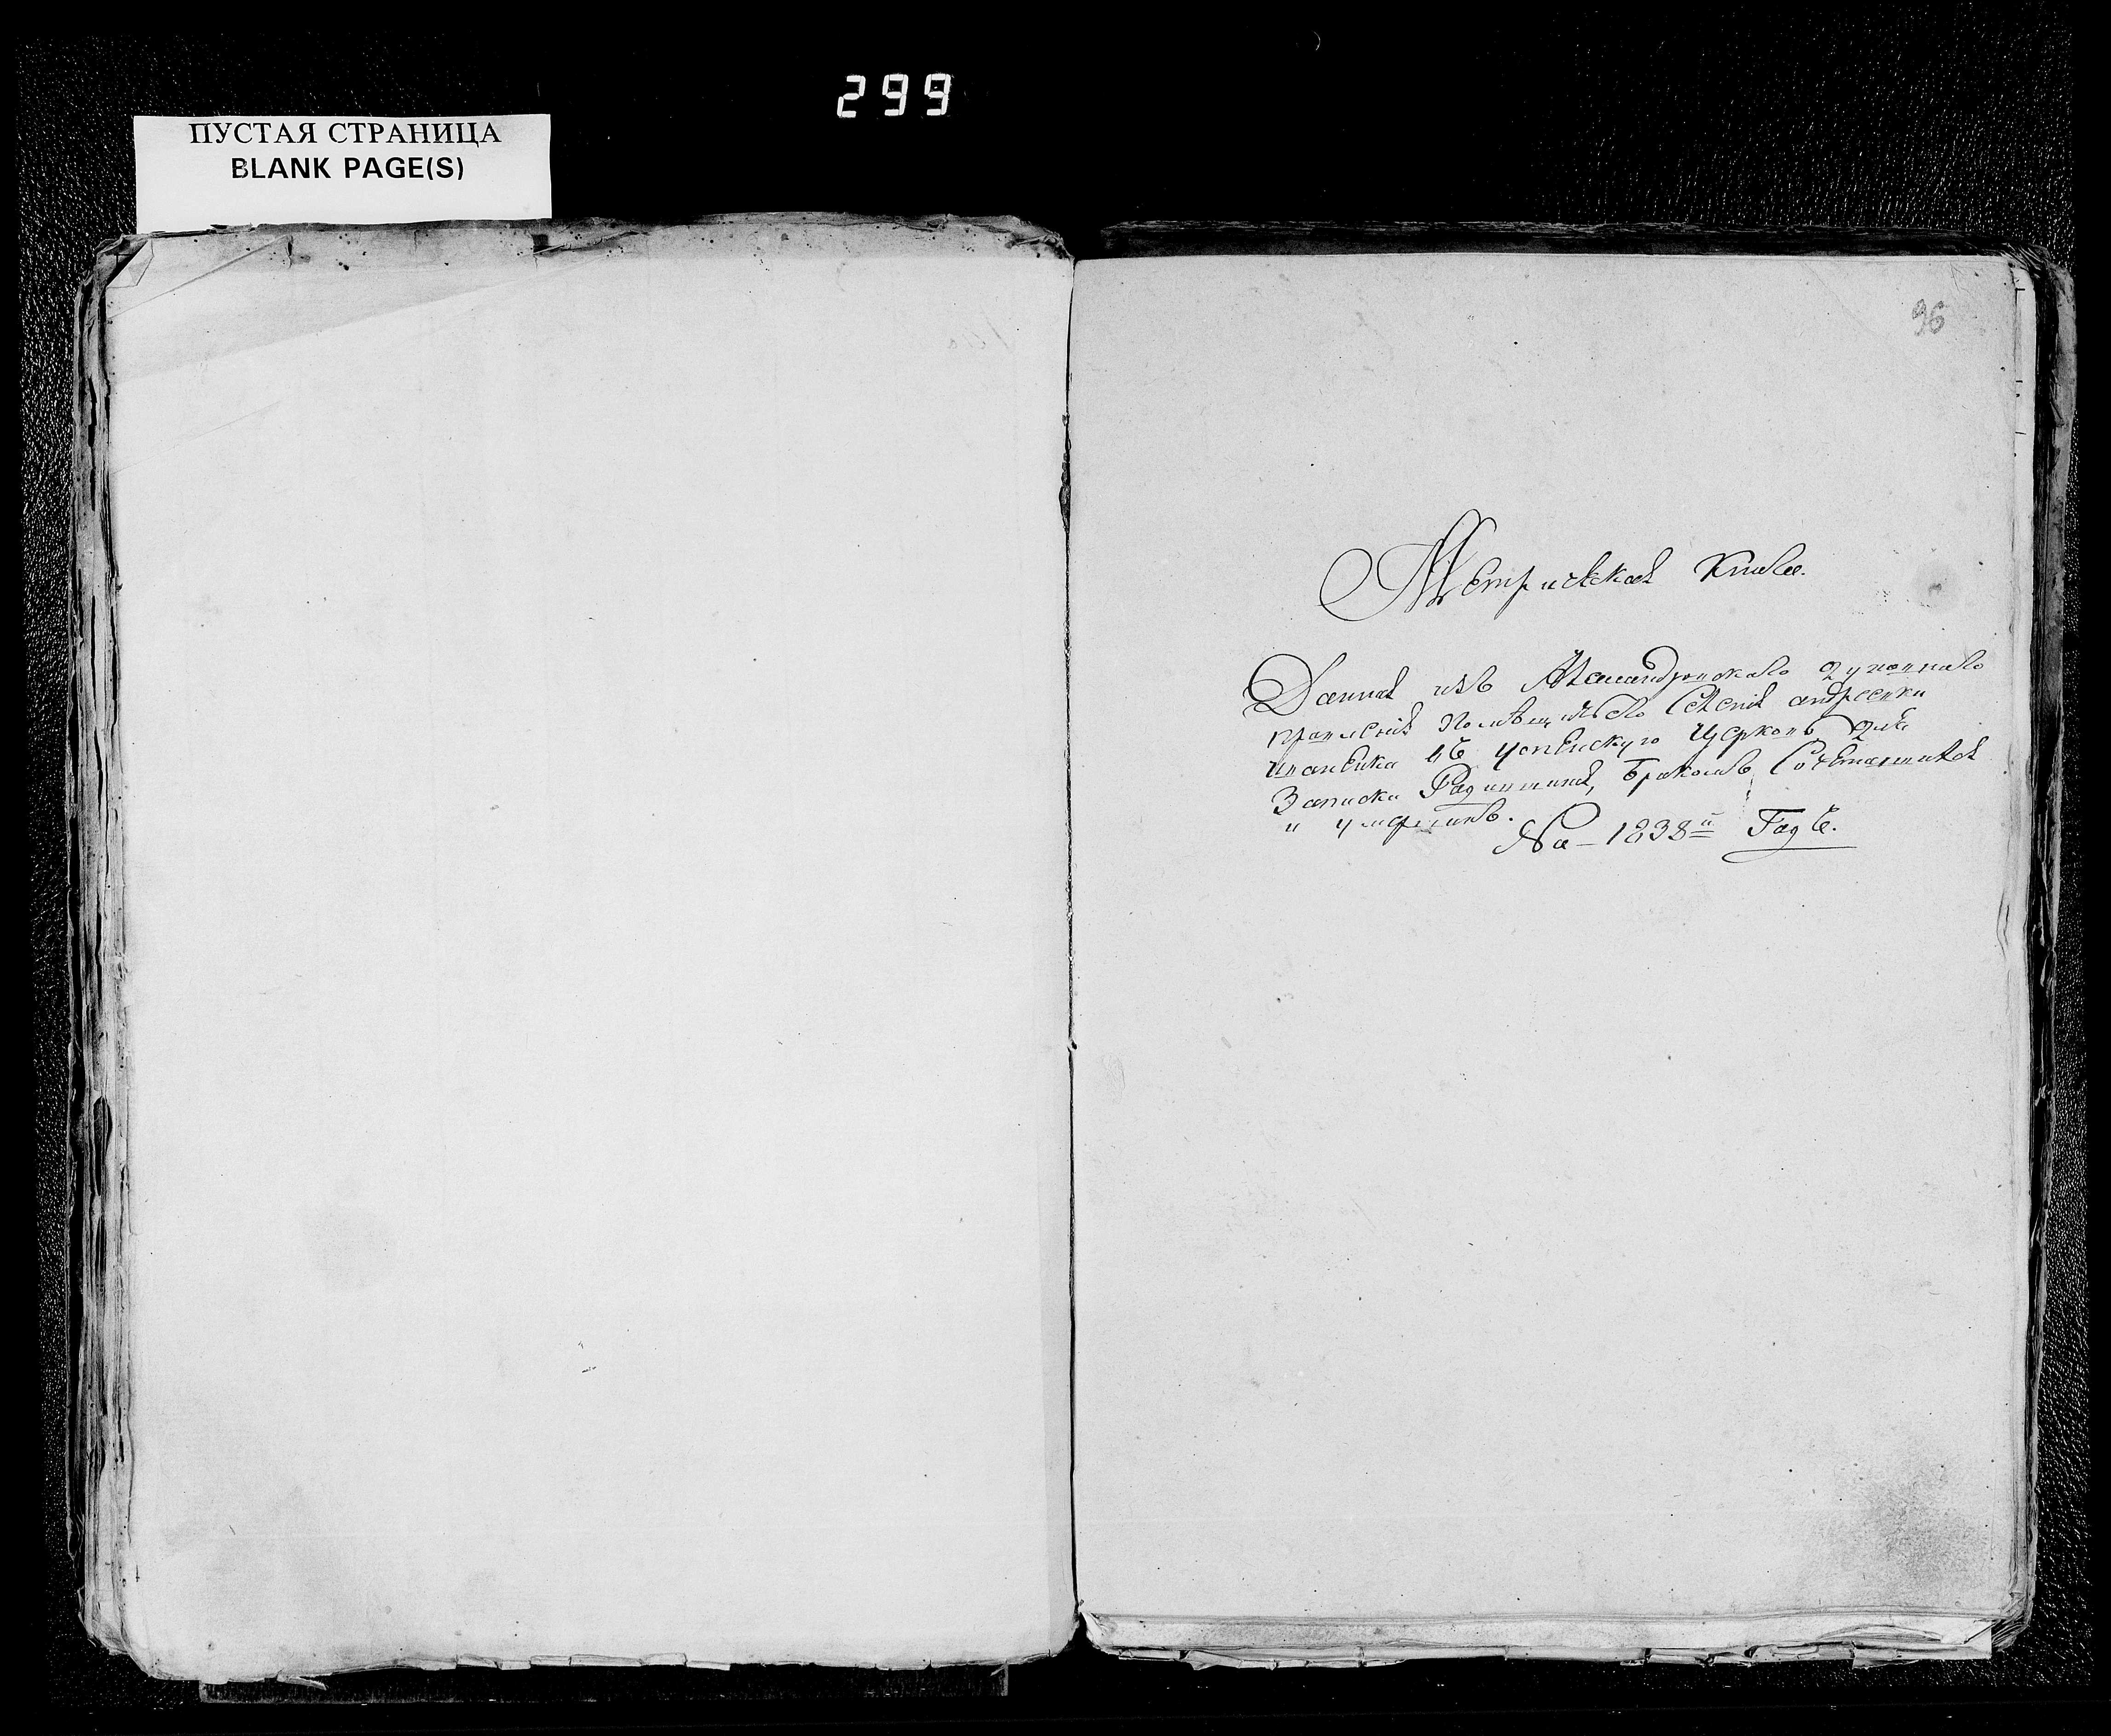 299
ПУСТАЯ СТРАНИЦА
BLANK PAGE(S)
96
Метрическая Книга.
Данная изъ Александрійскаго Духовнаго
правленія Помѣщичьего Селенія андреевки
ивановки въ успенскую Церковь для
Записки Родившихся, бракомъ Сочетавшихся
и умершихъ.
На 1838й Годъ.